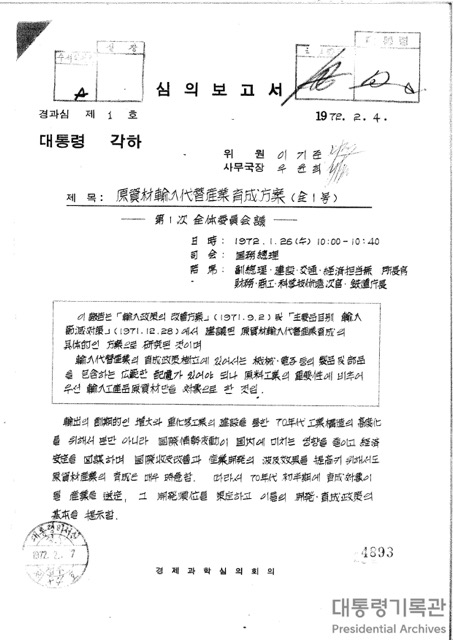 실 장
심 의 보 고 서
경과심 제 1 호
1972. 2. 4.
대통령 각하
위 원 이 기 준
사무국장 우 윤 희
제 목: 原資材輸入代替産業育成方案 (全1号)
第1次 全体委員会議
日 時: 1972.1.26(수) 10:00-10:40
司 会: 国務総理
副總理·建設·交通·経済担当
財務·商工·科学技術処次官·
이 報告는 「輸入政策의 改善方案」(1971.9.2) 및 「主要品目別 輸入
(1971.12.28)에서 建議된 原資材輸入代替産業育成의
具体的인 方案으로 研究된 것이며
輸入代替産業의 育成政策樹立에 있어서는 機械·電子等의 製品 및 部品
을 包含하는 広範한 配慮가 있어야 되나 原料工業의 重要性에 비추어
우선 輸入工産品原資材만을 対象으로 한 것임.
輸出의 劃期的인 增大와 重化学工業의 建設을 통한 70年代 工業構造의 高度化
를 위해서 뿐만 아니라 国際情勢変動이 国内에 미치는 영향을 줄이고 経済
安定을 図謀하며 国際収支改善과 産業開発의 波及効果를 提高키 위해서도
原資材産業의 育成은 매우 時急함. 따라서 70年代 初半期에 育成対象이
될 産業을 選定, 그 開発順位를 策定하고 이들의 開発·育成政策의
基本을 提示함.
1972. 2. 7
4893
경 제 과 학 심 의 회 의
대통령기록관
Presidential Archives